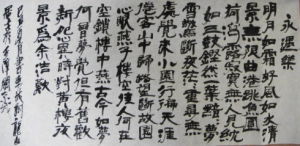 永遇樂
明月如霜好風如水清
景無限曲港跳魚圓
荷瀉露寂寞無人見紞
如三鼓鏗然一葉黯黯夢
雲驚斷夜茫茫重尋無
處覺來小園行遍天涯
倦客山中歸路望斷故園
心眼燕子樓空佳人何在
空鎖樓中燕古今如夢
何曾夢覺但有舊歡
新怨異時對黃樓夜
景為余浩歎